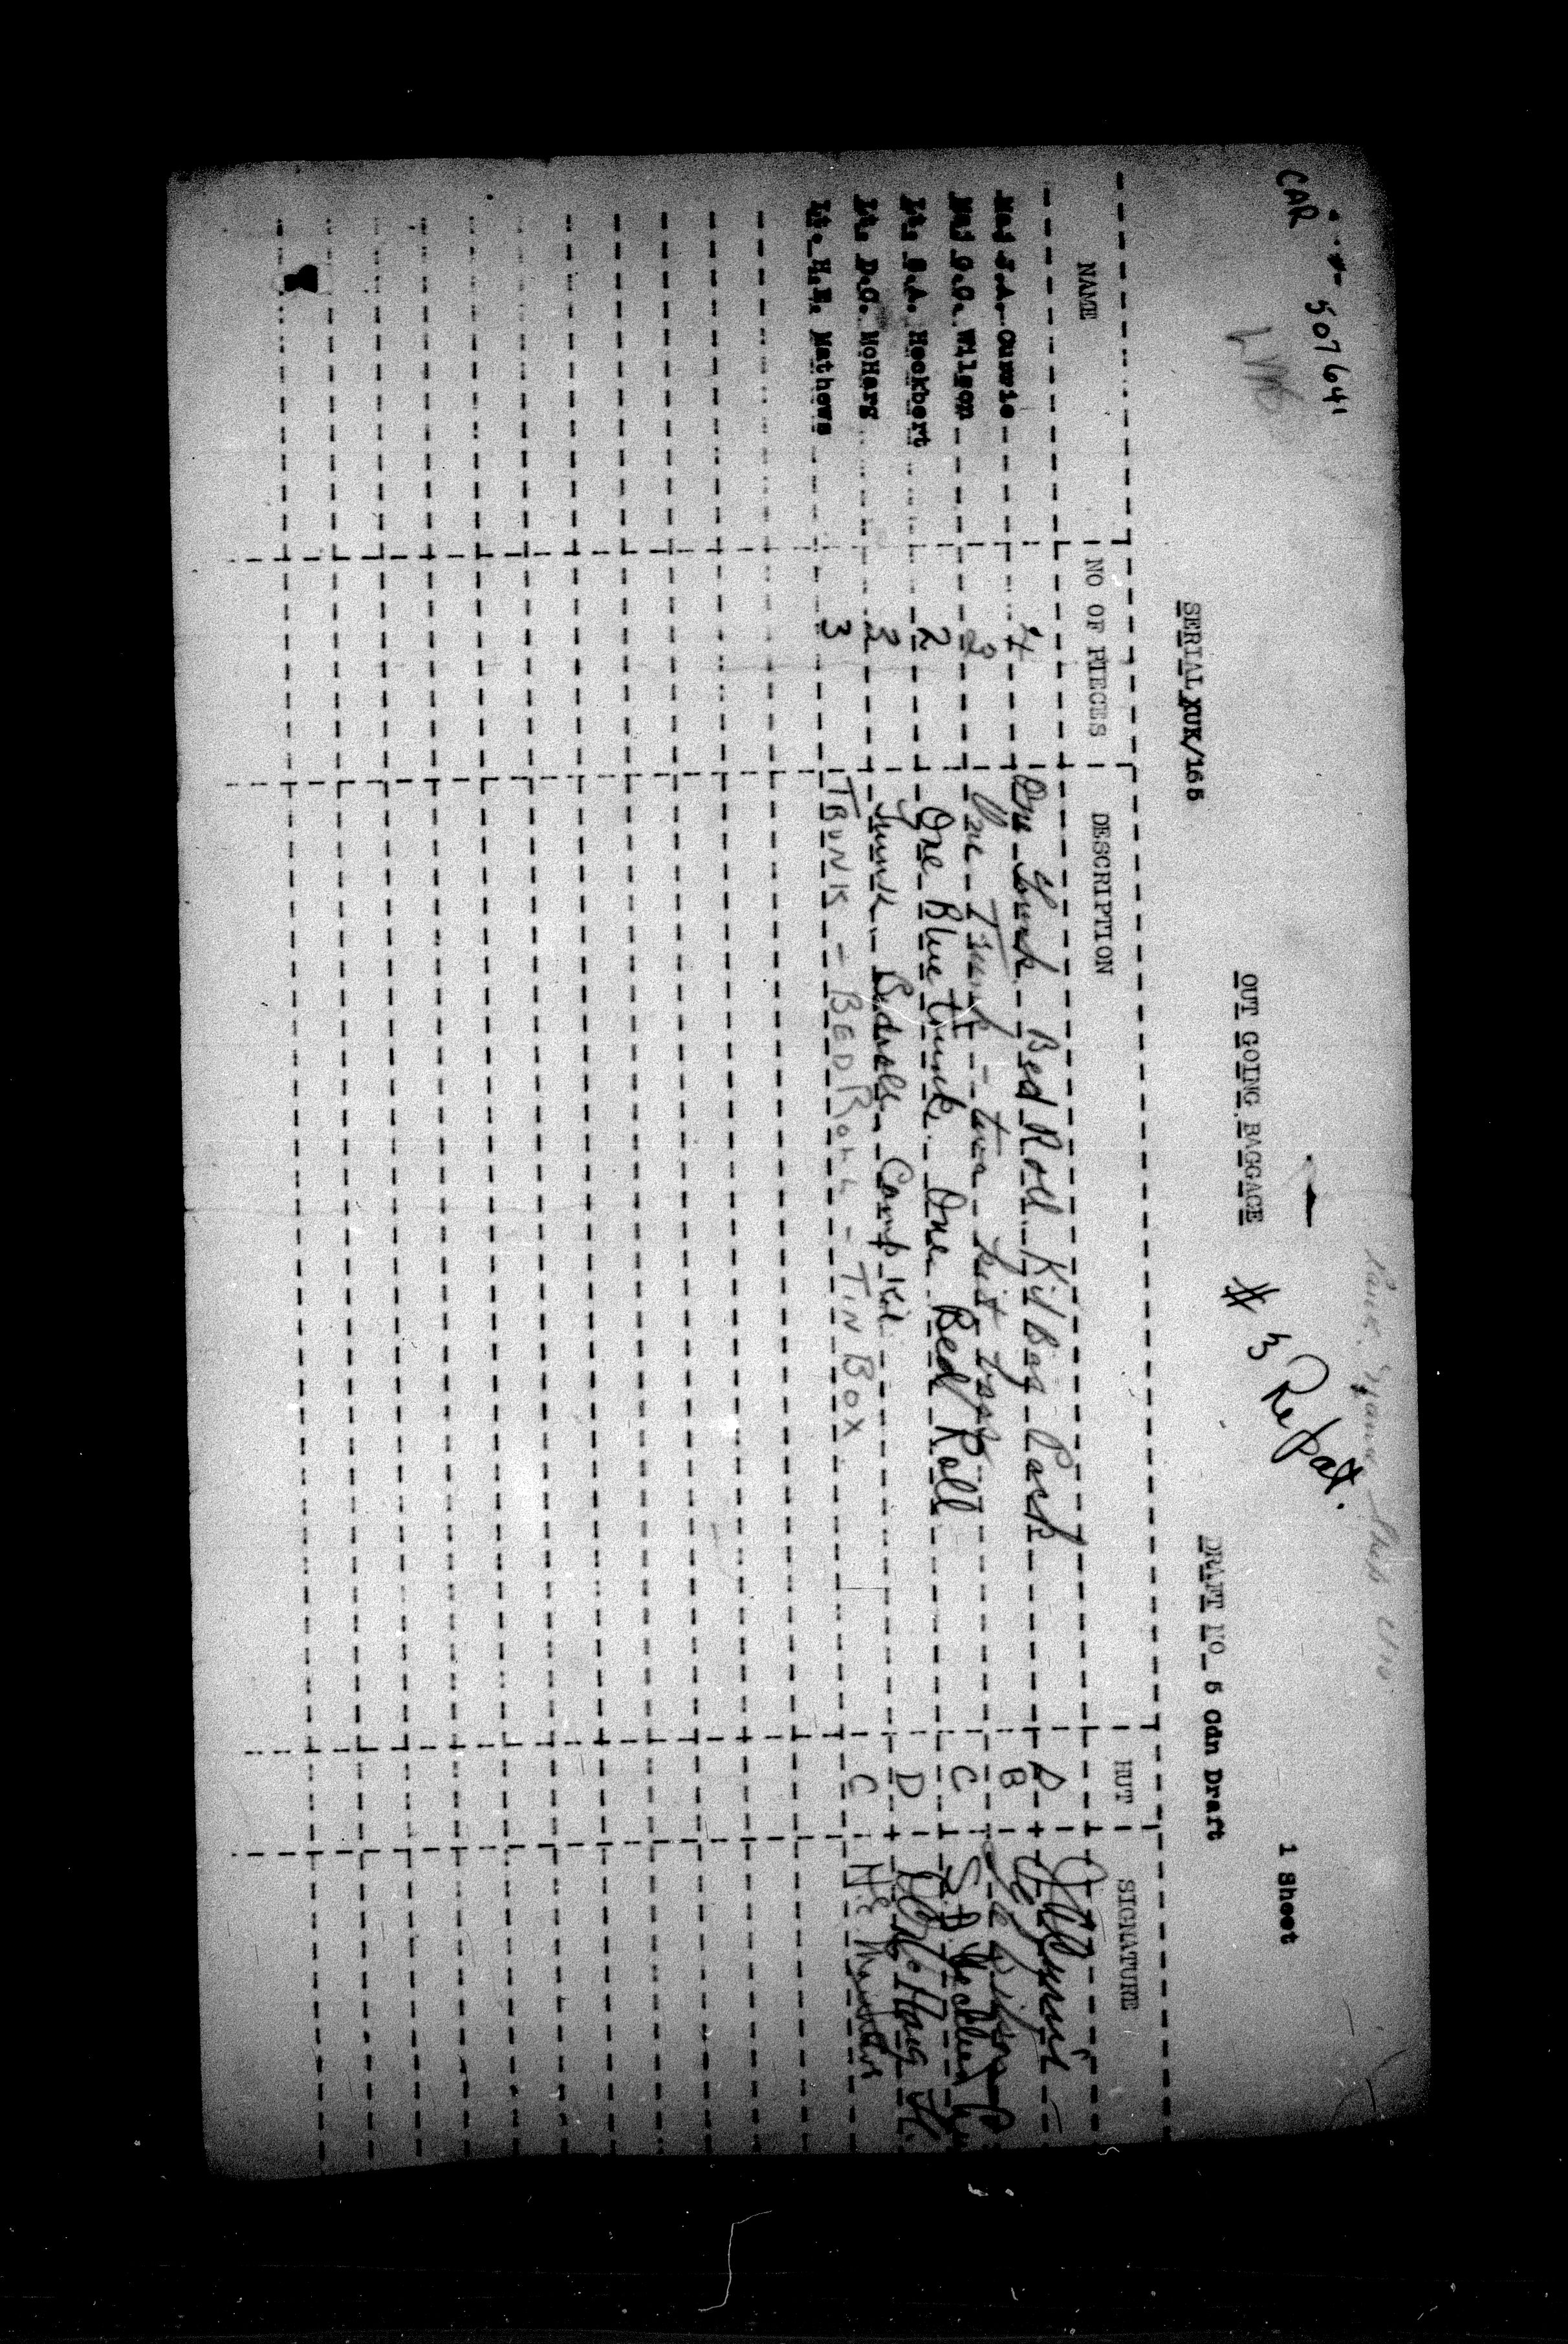 CAR 507641
1 Sheet
OUT GOING BAGGAGE # 3 Repat.
SERIAL XUK/165 DRAFT NO 5 Cdn Draft
NAME NO OF PIECES DESCRIPTION HUT SIGNATURE
Maj J.A. Currie 4 One Trunk Bed Roll Kit Bag Pack D
Maj Wilson 3 One Trunk - two kit bags B
Lt. S.A. Heckbert 2 One Blue trunk. One Bed Roll C S.A. Heckbert
Lt. D.C. McHarg 3 Trunk Bedroll Camp Kit D McHarg Lt.
Lt. H.E. Mathews 3 TRUNK - BED ROLL - TIN BOX C H.E. Mathews